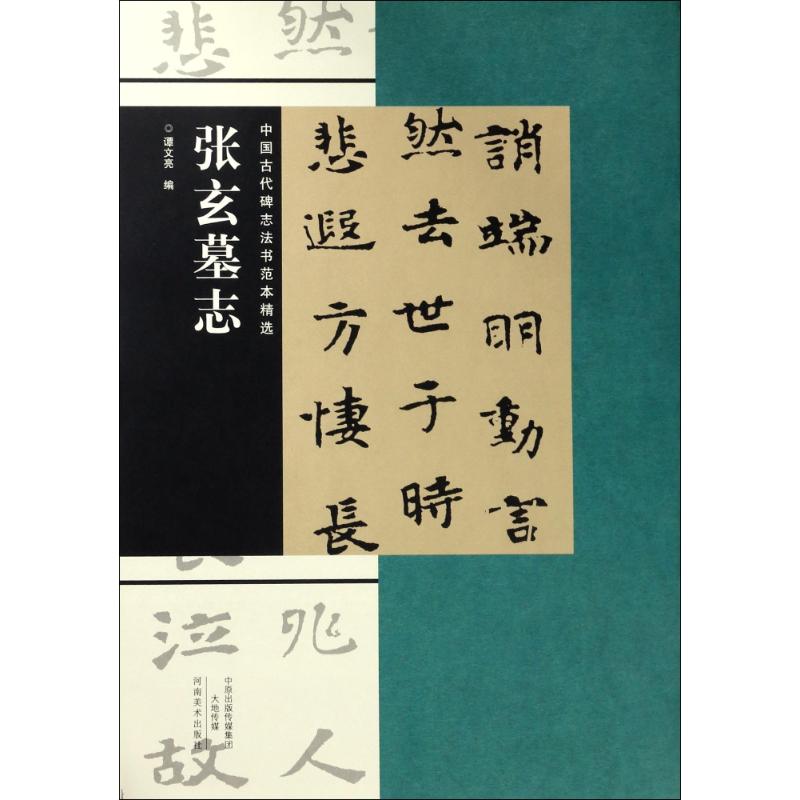 然
悲
誚端明動言
然去世于時
悲遐方悽長
中国古代碑志法书范本精选
张玄墓志
◎谭文亮 编
兆人
泣故
中原出版传媒集团
大地传媒
河南美术出版社